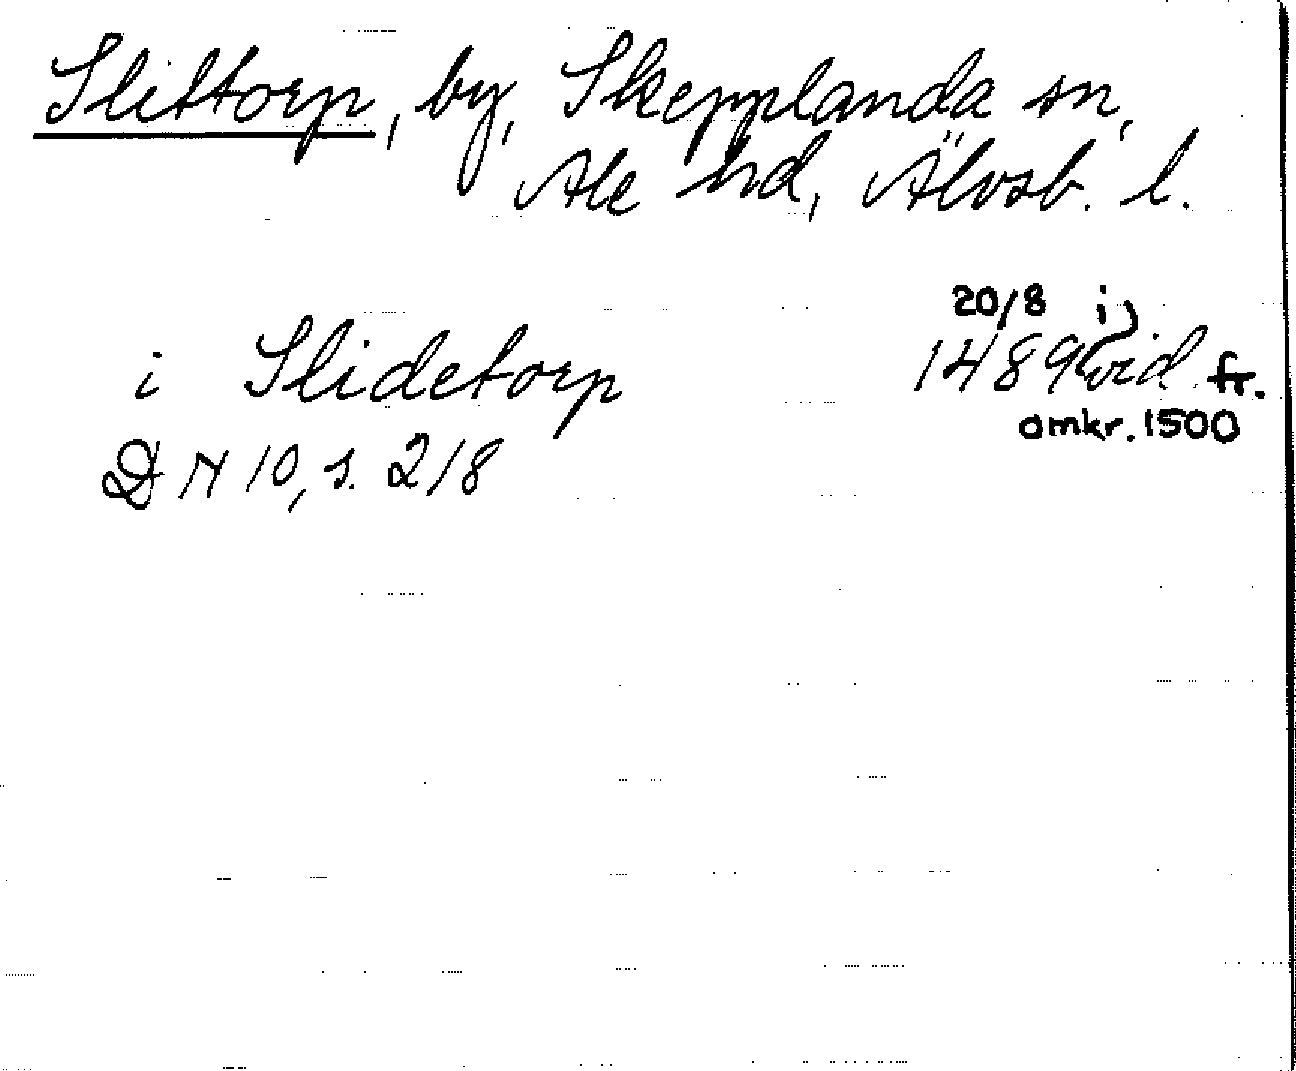 Slittorp, by, Skepplanda sn,
Ale hd, Älvsb. l.
20/8 i
i Slidetorp 1489 vid. fr.
omkr. 1500
DN 10, s. 218